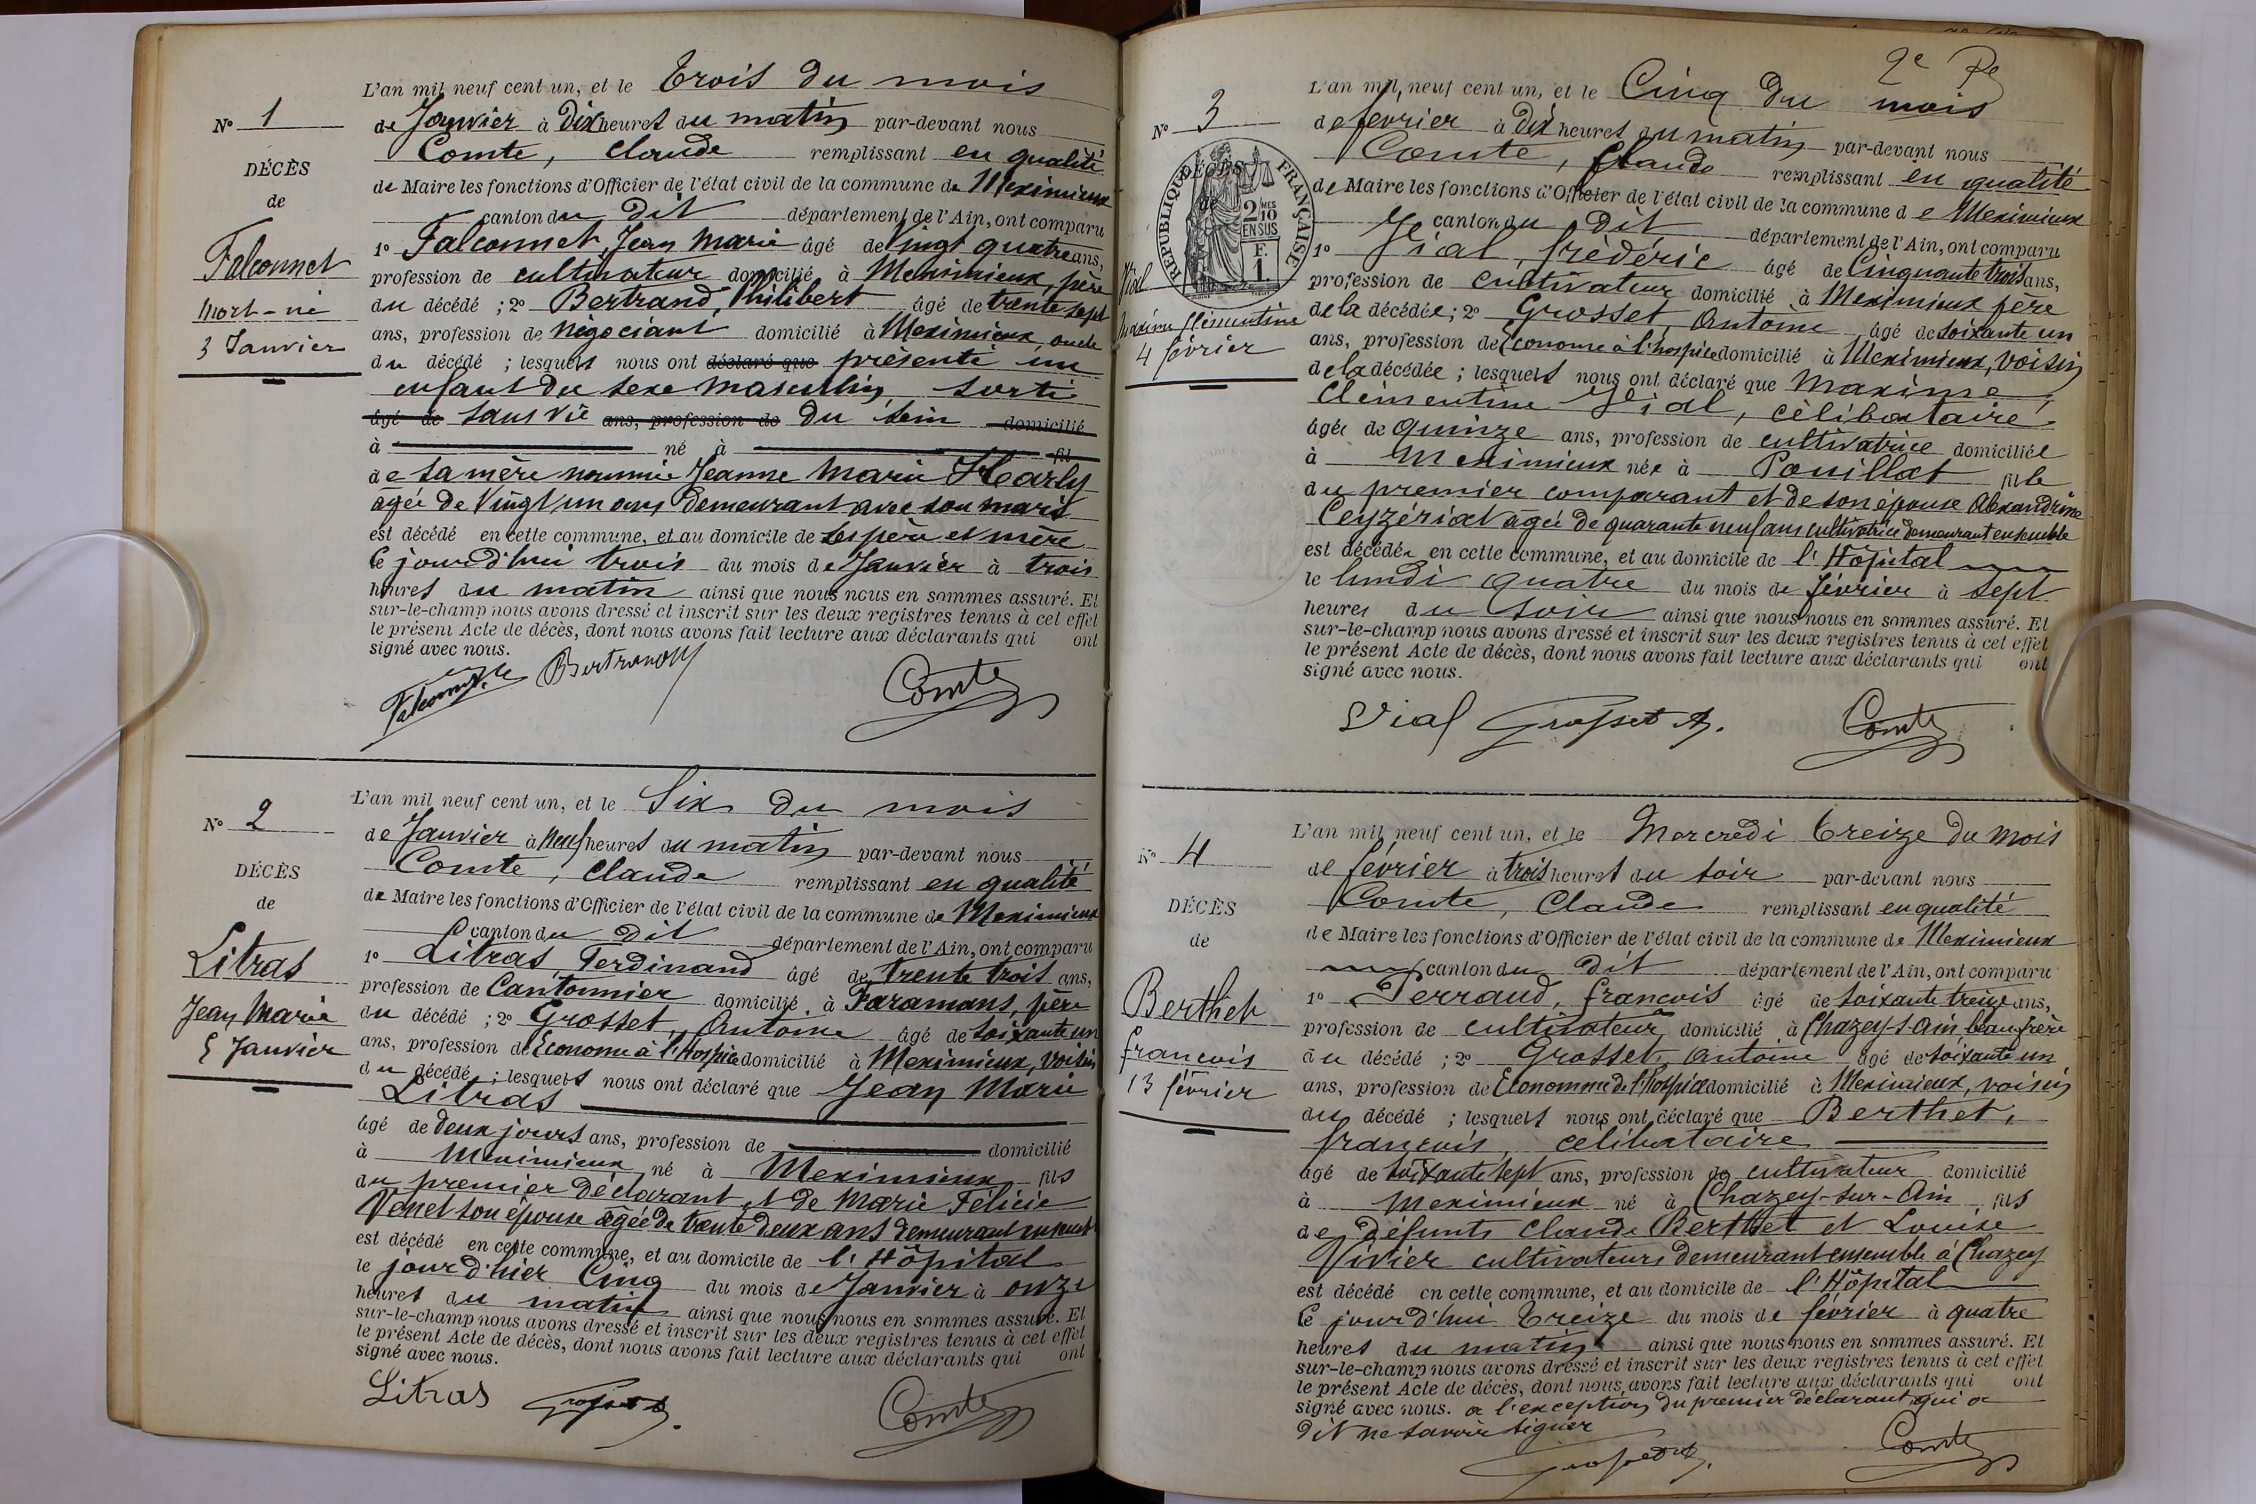 L'an mil neuf cent un, et le Trois du mois
N° 1
de Janvier à dix heures du matin par-devant nous
Comte, Claude remplissant en qualité
DÉCÈS
de Maire les fonctions d'Officier de l'état civil de la commune de Meximieux
de
canton du dit département de l'Ain, ont comparu
Falconnet
1° Falconnet, Jean Marie âgé de vingt quatre ans,
profession de cultivateur domicilié à Meximieux, père
mort-né
du décédé ; 2° Bertrand, Philibert âgé de trente sept
3 Janvier
ans, profession de négociant domicilié à Meximieux, oncle
du décédé ; lesquels nous ont déclaré que présenté un
enfant du sexe masculin, sorti
âgé de sans vie ans, profession de du sein domicilié
à né à fil
de sa mère nommée Jeanne Marie Harly
agée de Vingt un ans demeurant avec son mari
est décédé en cette commune, et au domicile de ses père et mère
le jourd'hui trois du mois de Janvier à trois
heures du matin ainsi que nous nous en sommes assuré. Et
sur-le-champ nous avons dressé et inscrit sur les deux registres tenus à cet effet
le présent Acte de décès, dont nous avons fait lecture aux déclarants qui ont
signé avec nous.
Falconnet Bertrand Comte
L'an mil neuf cent un, et le Six du mois
N° 2
de Janvier à neuf heures du matin par-devant nous
Comte, Claude remplissant en qualité
DÉCÈS
de Maire les fonctions d'Officier de l'état civil de la commune de Meximieux
de
canton du dit département de l'Ain, ont comparu
Litras
1° Litras Ferdinand âgé de trente trois ans,
profession de Cantonnier domicilié à Faramans, père
Jean Marie
du décédé ; 2° Grosset, Antoine âgé de soixante un
5 Janvier
ans, profession de Econome à l'Hospice domicilié à Meximieux, voisin
du décédé ; lesquels nous ont déclaré que Jean Marie
Litras
âgé de deux jours ans, profession de domicilié
à Meximieux né à Meximieux fils
du premier déclarant et de Marie Félicie
Venet son épouse agée de trente deux ans demeurant ensemble
est décédé en cette commune, et au domicile de l'Hôpital
le jour d'hier Cinq du mois de Janvier à onze
heures du matin ainsi que nous nous en sommes assuré. Et
sur-le-champ nous avons dressé et inscrit sur les deux registres tenus à cet effet
le présent Acte de décès, dont nous avons fait lecture aux déclarants qui ont
signé avec nous.
Litras Grosset A. Comte
2e
L'an mil neuf cent un, et le Cinq du mois
N° 3
de février à dix heures du matin par-devant nous
Comte, Claude remplissant en qualité
DÉCÈS
de
RÉPUBLIQUE FRANÇAISE
2 MES
10
EN SUS
F.
1
de Maire les fonctions d'Officier de l'état civil de la commune de Meximieux
canton du dit département de l'Ain, ont comparu
1° Vial, frédéric âgé de Cinquante trois ans,
Vial
profession de cultivateur domicilié à Meximieux père
Maxime Clémentine
de la décédée ; 2° Grosset, Antoine âgé de soixante un
4 février
ans, profession de Econome à l'hospice domicilié à Meximieux, voisin
de la décédée ; lesquels nous ont déclaré que Maxime
Clémentine Vial, célibataire
âgée de quinze ans, profession de cultivatrice domiciliée
à Meximieux née à Pouillat fille
du premier comparant et de son épouse Alexandrine
Ceyzériat agée de quarante neuf ans cultivatrice demeurant ensemble
est décédée en cette commune, et au domicile de l'Hôpital
le lundi quatre du mois de février à sept
heures du soir ainsi que nous nous en sommes assuré. Et
sur-le-champ nous avons dressé et inscrit sur les deux registres tenus à cet effet
le présent Acte de décès, dont nous avons fait lecture aux déclarants qui ont
signé avec nous.
Vial Grosset A. Comte
L'an mil neuf cent un, et le Mercredi treize du mois
N° 4
de février à trois heures du soir par-devant nous
Comte, Claude remplissant en qualité
DÉCÈS
de Maire les fonctions d'Officier de l'état civil de la commune de Meximieux
de
canton du dit département de l'Ain, ont comparu
Berthet
1° Perraud, françois âgé de soixante treize ans,
profession de cultivateur domicilié à Chazey-s-Ain, beau frère
françois
du décédé ; 2° Grosset, Antoine âgé de soixante un
13 février
ans, profession de Econome de l'hospice domicilié à Meximieux, voisin
du décédé ; lesquels nous ont déclaré que Berthet,
françois, célibataire
âgé de soixante sept ans, profession de cultivateur domicilié
à Meximieux né à Chazey-sur-Ain fils
de défunts Claude Berthet et Louise
Vivier cultivateurs demeurant ensemble à Chazey
est décédé en cette commune, et au domicile de l'Hôpital
le jourd'hui treize du mois de février à quatre
heures du matin ainsi que nous nous en sommes assuré. Et
sur-le-champ nous avons dressé et inscrit sur les deux registres tenus à cet effet
le présent Acte de décès, dont nous avons fait lecture aux déclarants qui ont
signé avec nous. a l'exception du premier déclarant qui a
dit ne savoir signer
Grosset A. Comte